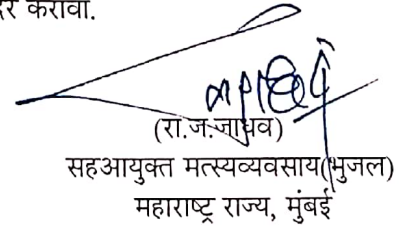 करावा.
(रा.ज.जाधव)
सहआयुक्त मत्स्यव्यवसाय(भुजल)
महाराष्ट्र राज्य, मुंबई